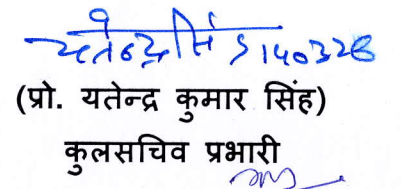 यतेन्द्र सिंह 140326
(प्रो. यतेन्द्र कुमार सिंह)
कुलसचिव प्रभारी